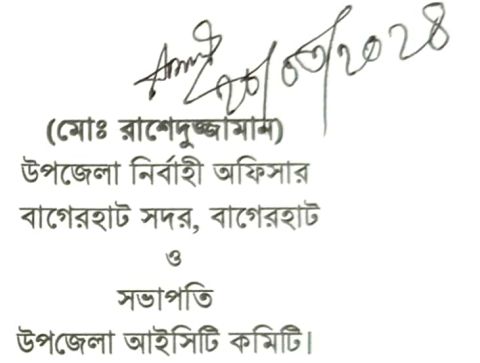 ২০/০৩/২০২৪
(মোঃ রাশেদুজ্জামান)
উপজেলা নির্বাহী অফিসার
বাগেরহাট সদর, বাগেরহাট
ও
সভাপতি
উপজেলা আইসিটি কমিটি।